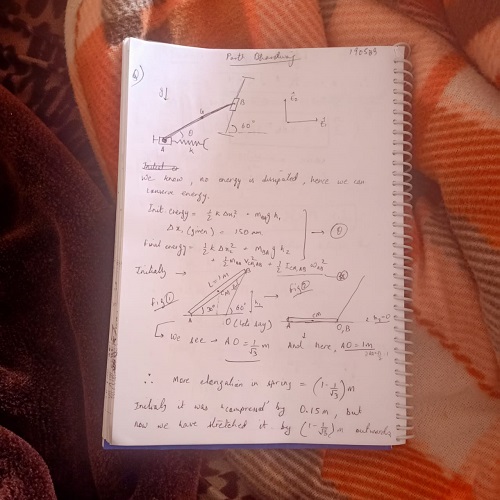 Parth Obandung 190589
Q)
g↓
B
G
θ
60°
A
k
Ê₂
Ê₁
Initial
We know, no energy is dissipated, hence we can
conserve energy.
Init. energy = ½ k Δx₁² + m_AB g h₁
Δx₁ (given) = 150 mm
Final energy = ½ k Δx₂² + m_AB g h₂
+ ½ m_AB V_CM,AB² + ½ I_CM,AB ω_AB²
Initially →
Fig ①
L = 1m
CM
30°
60°
h₁
A
O (lets say)
Fig ②
CM
A
O,B
h₂=0
↳ We see → AO = 1/√3 m And here, AO = 1m
∴ More elongation in spring = (1 - 1/√3) m
Initially it was "compressed" by 0.15 m, but
now we have stretched it by (1 - 1/√3) m outwards